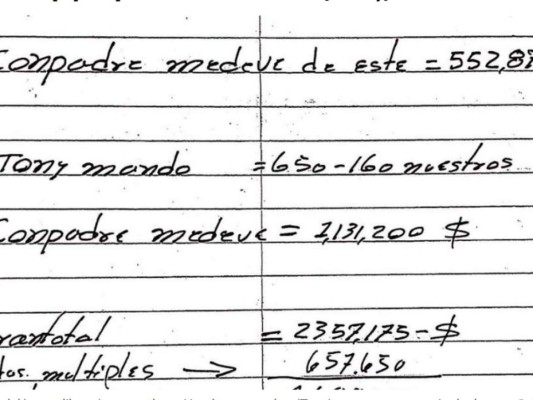 Conpadre medeve de este = 552,8
Tony mando = 650 - 160 nuestros
Conpadre medeve = 1,131,200 $
rantotal = 2357,175 - $
tos multiples → 657.650